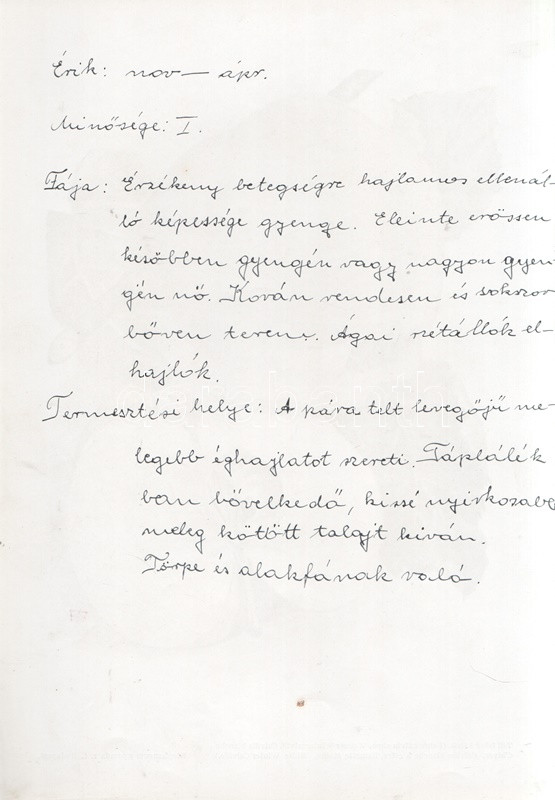 Érik: nov — ápr.
Minősége: I.
Fája: Érzékeny betegségre hajlamos ellenál-
ló képessége gyenge. Eleinte erőssen
későbben gyengén vagy nagyon gyen-
gén nő. Kován rendesen és sokszor
bőven terem. Ágai szétállók el-
hajlók.
Termesztési helye: A pára telt levegőjű me-
legebb éghajlatot szereti. Táplálék
ban bővelkedő, kissé nyirkosabb
meleg kötött talajt kiván.
Törpe és alakfának való.